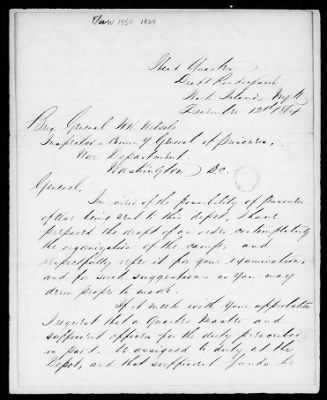 1864
Head Quarters
Draft Rendezvous
Hart Island N.Y.H.
December 12th 1864
Brig. General
Inspector & Comm'y General of prisoners,
War Department
Washington D.C.
General,
In view of the possibility of prisoners
of War being sent to this depot, I have
prepared the draft of an order, contemplating
the organization of the camp, and
respectfully refer it for your examination,
and for such suggestions as you may
deem proper to make.
If it meets with your approbation
I request that a Quarter Master and
sufficient officers for the duty prescribed
in par 1. be assigned to duty at the
Depot, and that sufficient funds be